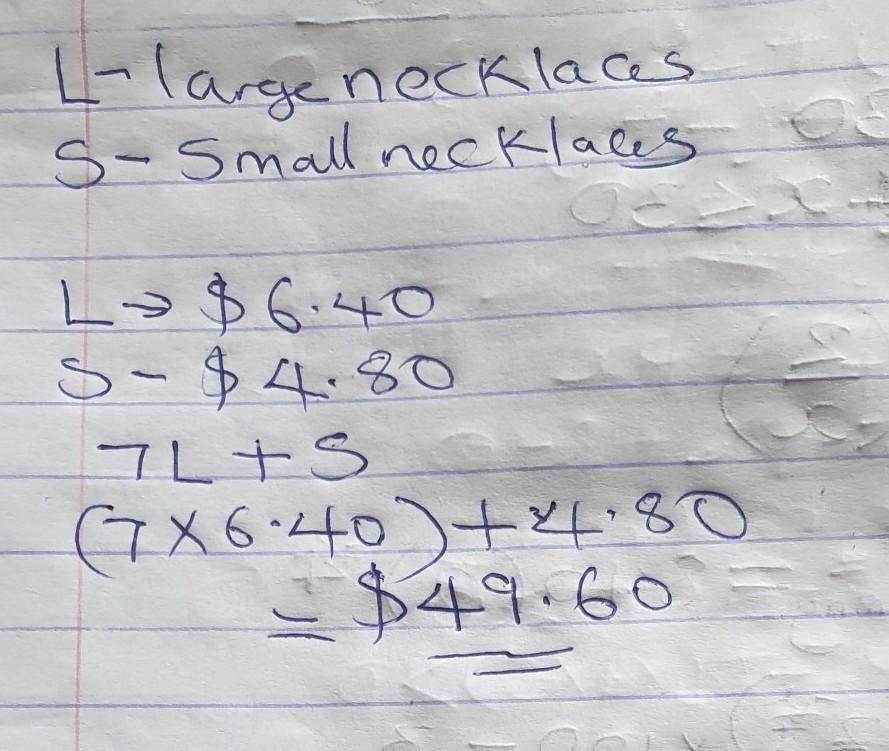 L- large necklaces
S- Small necklaces
L→ $ 6.40
S- $ 4.80
7L + S
(7 × 6.40) + 4.80
= $49.60